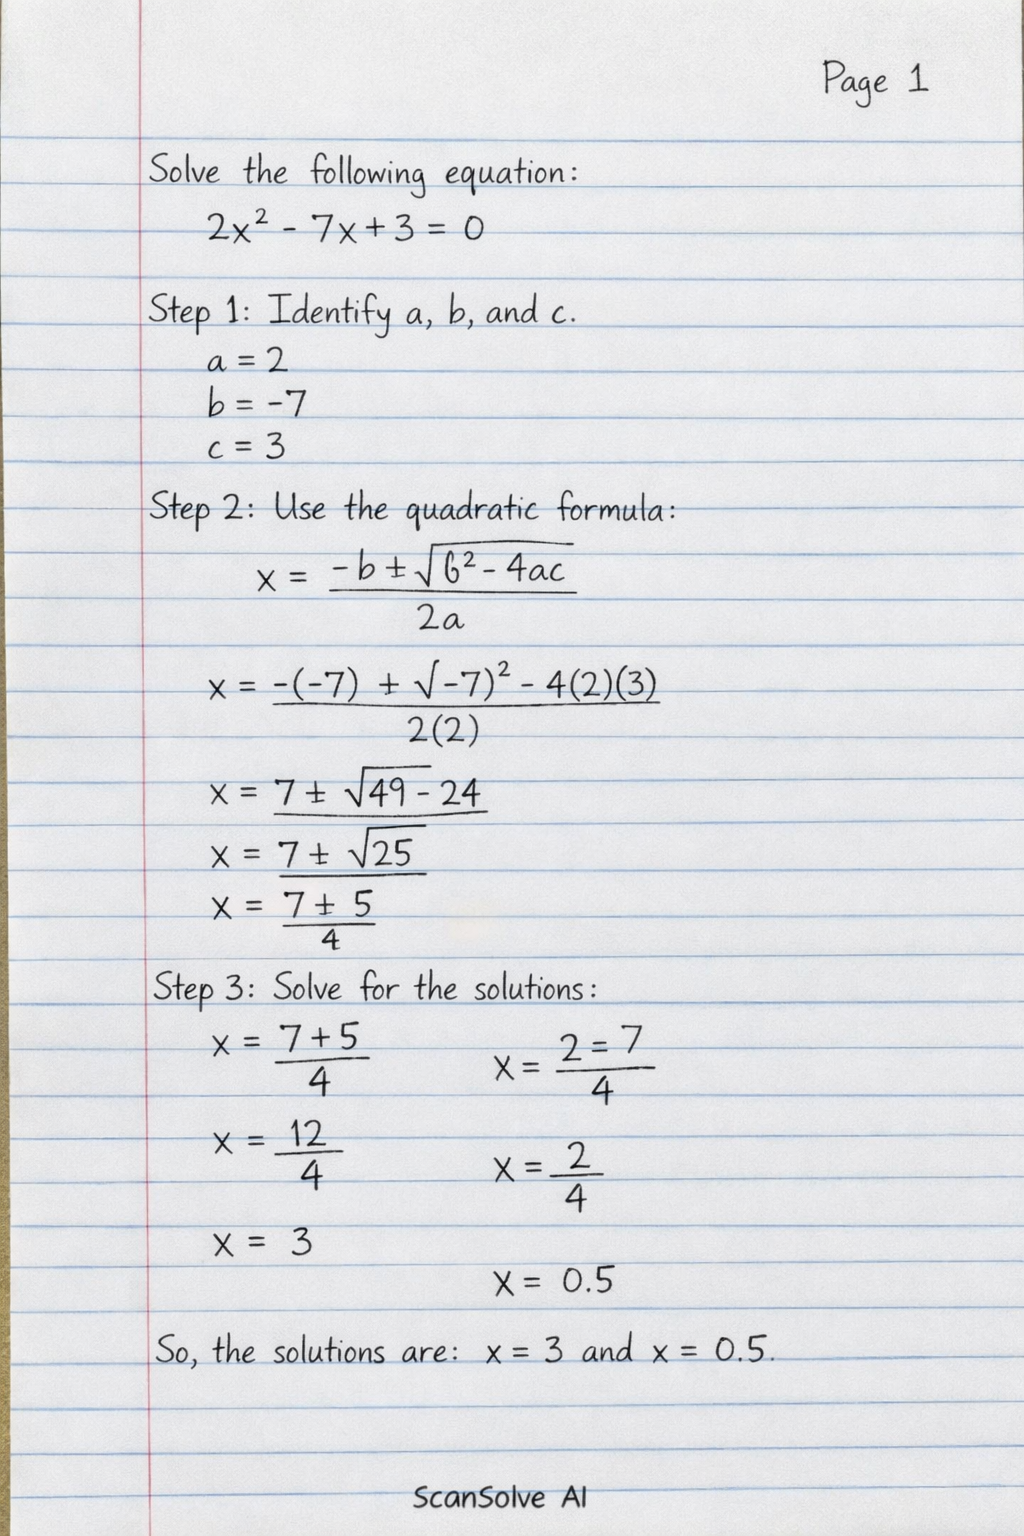 Page 1
Solve the following equation:
2x² - 7x + 3 = 0
Step 1: Identify a, b, and c.
a = 2
b = -7
c = 3
Step 2: Use the quadratic formula:
x = -b ± √6² - 4ac
2a
x = -(-7) ± √-7)² - 4(2)(3)
2(2)
x = 7 ± √49 - 24
x = 7 ± √25
x = 7 ± 5
4
Step 3: Solve for the solutions:
x = 7 + 5
4
x = 2 = 7
4
x = 12
4
x = 2
4
x = 3
x = 0.5
So, the solutions are: x = 3 and x = 0.5.
ScanSolve AI